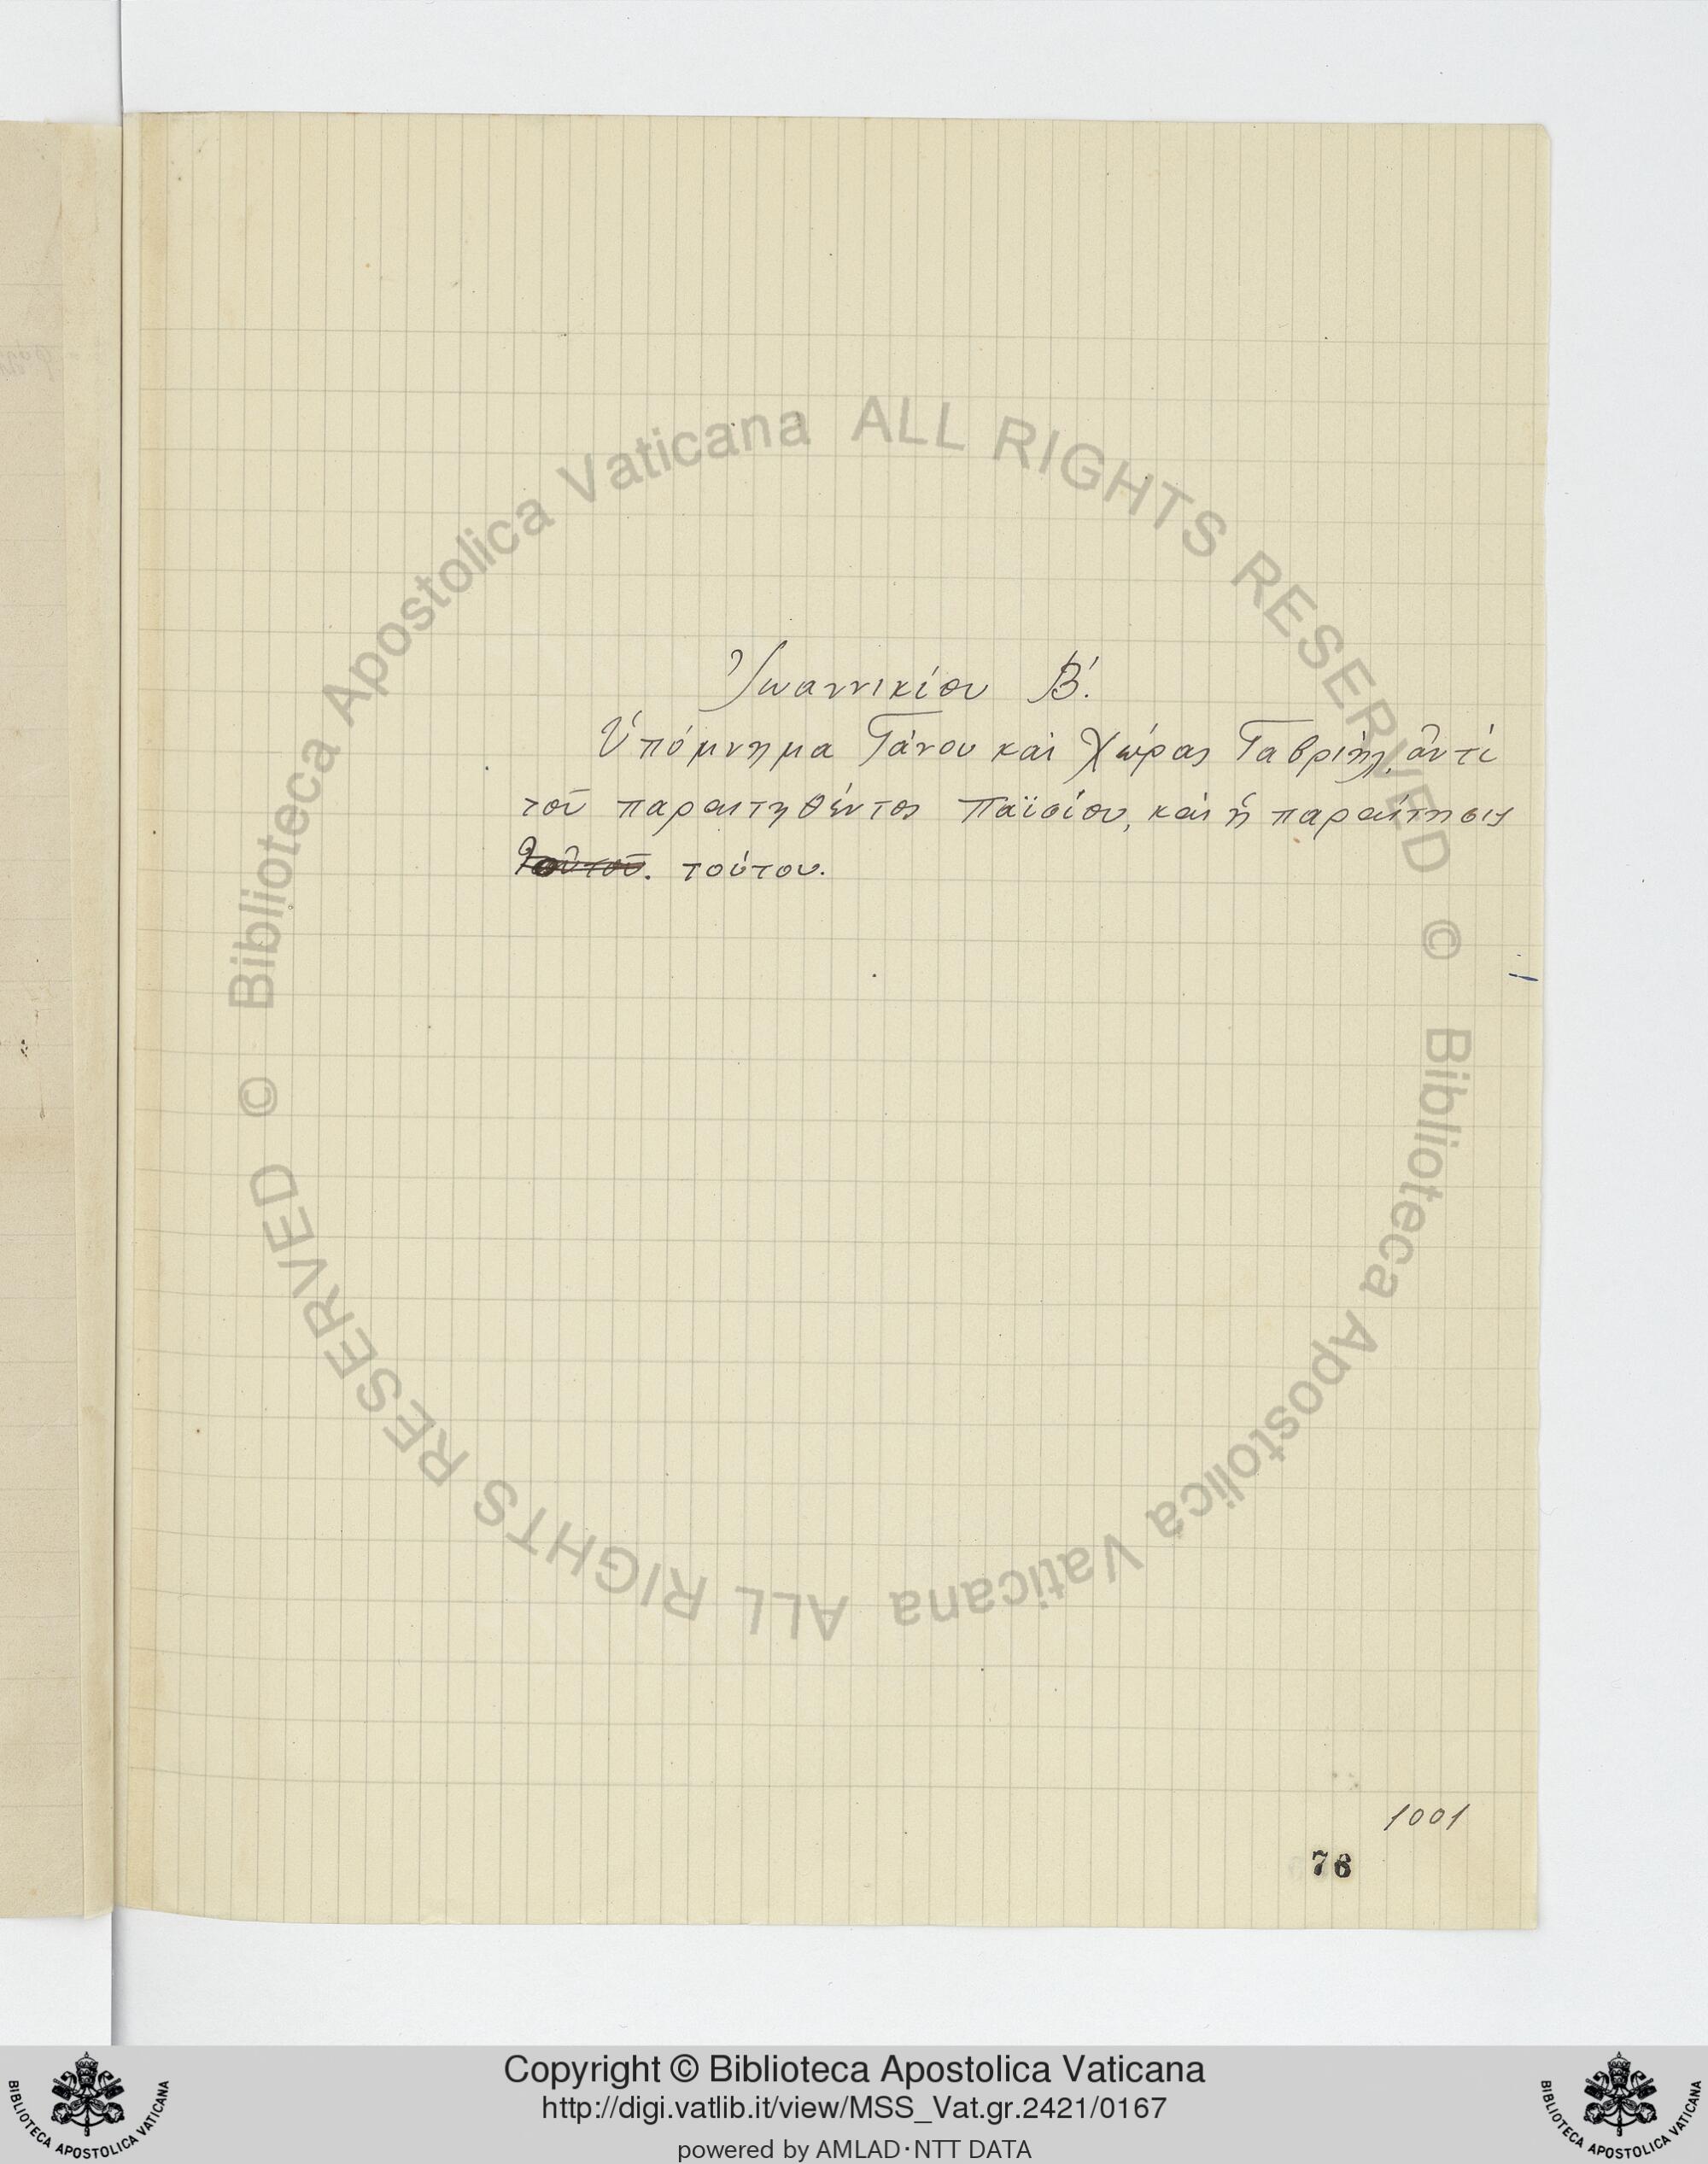 Ἰωαννικίου Β΄.
Ὑπόμνημα Γάνου καὶ Χώρας Γαβριὴλ, ἀντὶ
τοῦ παραιτηθέντος Παϊσίου, καὶ ἡ παραίτησις
τούτου.
1001
76
© Biblioteca Apostolica Vaticana ALL RIGHTS RESERVED © Biblioteca Apostolica Vaticana ALL RIGHTS RESERVED
BIBLIOTECA APOSTOLICA VATICANA
Copyright © Biblioteca Apostolica Vaticana
http://digi.vatlib.it/view/MSS_Vat.gr.2421/0167
powered by AMLAD·NTT DATA
BIBLIOTECA APOSTOLICA VATICANA